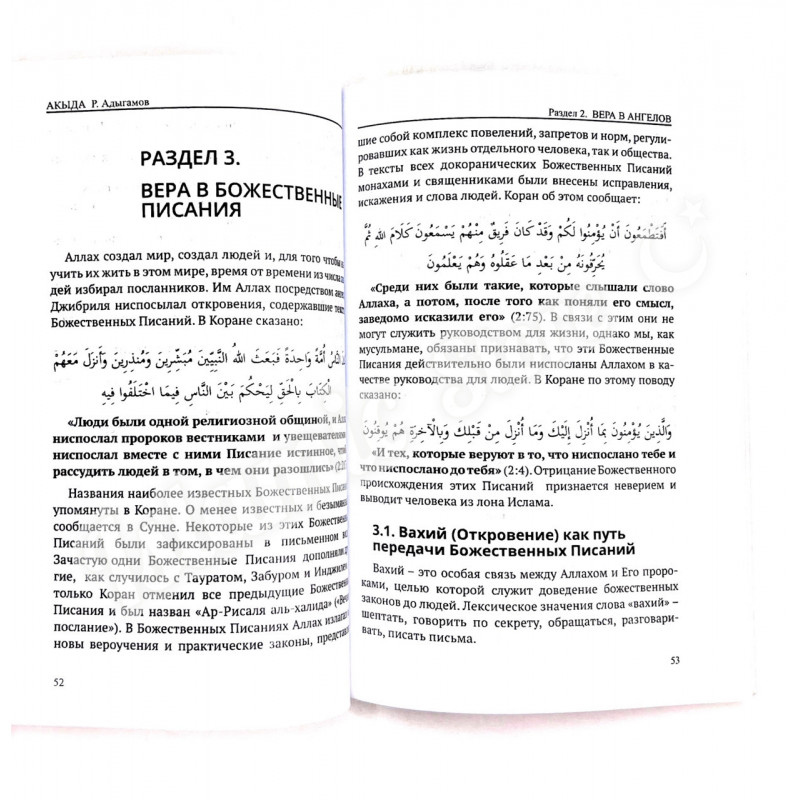 АКЫДА Р. Адыгамов
РАЗДЕЛ 3.
ВЕРА В БОЖЕСТВЕННЫЕ
ПИСАНИЯ
Аллах создал мир, создал людей и, для того чтобы
учить их жить в этом мире, время от времени из числа
дей избирал посланников. Им Аллах посредством
Джибриля ниспосылал откровения, содержавшие
Божественных Писаний. В Коране сказано:
النَّاسُ أُمَّةً وَاحِدَةً فَبَعَثَ اللَّهُ النَّبِيِّينَ مُبَشِّرِينَ وَمُنذِرِينَ وَأَنزَلَ مَعَهُمُ
الْكِتَابَ بِالْحَقِّ لِيَحْكُمَ بَيْنَ النَّاسِ فِيمَا اخْتَلَفُوا فِيهِ
«Люди были одной религиозной общиной, и
ниспослал пророков вестниками и увещевателями
ниспослал вместе с ними Писание истинное,
рассудить людей в том, в чем они разошлись»
Названия наиболее известных Божественных
упомянуты в Коране. О менее известных и
сообщается в Сунне. Некоторые из этих
Писаний были зафиксированы в письменном
Зачастую одни Божественные Писания дополняли
гие, как случилось с Тауратом, Забуром и
только Коран отменил все предыдущие
Писания и был назван «Ар-Рисаля аль-халида»
послание»). В Божественных Писаниях Аллах
новы вероучения и практические законы,
52
Раздел 2. ВЕРА В АНГЕЛОВ
шие собой комплекс повелений, запретов и норм, регули-
ровавших как жизнь отдельного человека, так и общества.
В тексты всех докоранических Божественных Писаний
монахами и священниками были внесены исправления,
искажения и слова людей. Коран об этом сообщает:
أَفَتَطْمَعُونَ أَنْ يُؤْمِنُوا لَكُمْ وَقَدْ كَانَ فَرِيقٌ مِنْهُمْ يَسْمَعُونَ كَلَامَ اللهِ ثُمَّ
يُحَرِّفُونَهُ مِنْ بَعْدِ مَا عَقَلُوهُ وَهُمْ يَعْلَمُونَ
«Среди них были такие, которые слышали слово
Аллаха, а потом, после того как поняли его смысл,
заведомо исказили его» (2:75). В связи с этим они не
могут служить руководством для жизни, однако мы, как
мусульмане, обязаны признавать, что эти Божественные
Писания действительно были ниспосланы Аллахом в ка-
честве руководства для людей. В Коране по этому поводу
сказано:
وَالَّذِينَ يُؤْمِنُونَ بِمَا أُنْزِلَ إِلَيْكَ وَمَا أُنْزِلَ مِنْ قَبْلِكَ وَبِالْآخِرَةِ هُمْ يُوقِنُونَ
«И тех, которые веруют в то, что ниспослано тебе и
что ниспослано до тебя» (2:4). Отрицание Божественного
происхождения этих Писаний признается неверием и
выводит человека из лона Ислама.
3.1. Вахий (Откровение) как путь
передачи Божественных Писаний
Вахий – это особая связь между Аллахом и Его проро-
ками, целью которой служит доведение божественных
законов до людей. Лексическое значения слова «вахий» –
шептать, говорить по секрету, обращаться, разговари-
вать, писать письма.
53